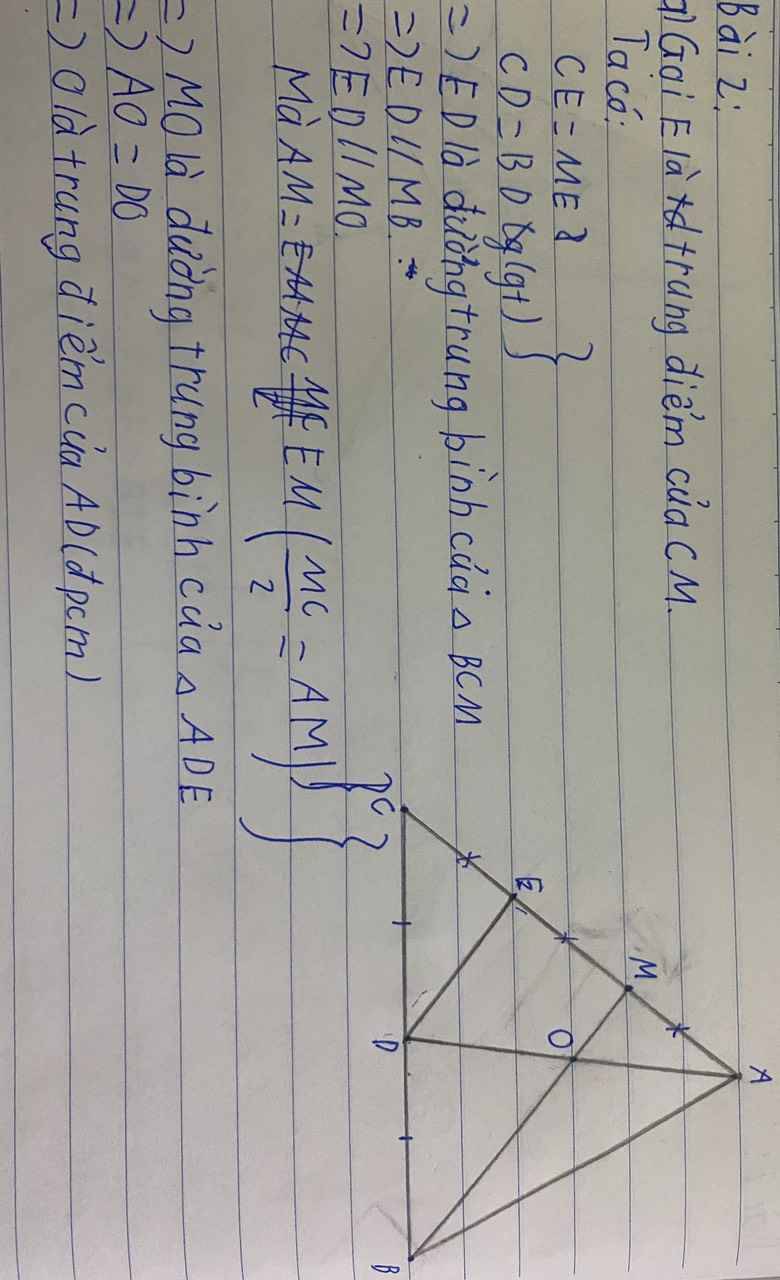 Bài 2:
a) Gọi E là trung điểm của CM.
Ta có:
CE = ME
CD = BD (gt) }
=) ED là đường trung bình của △ BCM
=) ED // MB.
=) ED // MO.
Mà AM = EM ( MC/2 = AM ) }
=) MO là đường trung bình của △ ADE
=) AO = DO
=) O là trung điểm của AD (đpcm)
A
M
E
C
O
D
B